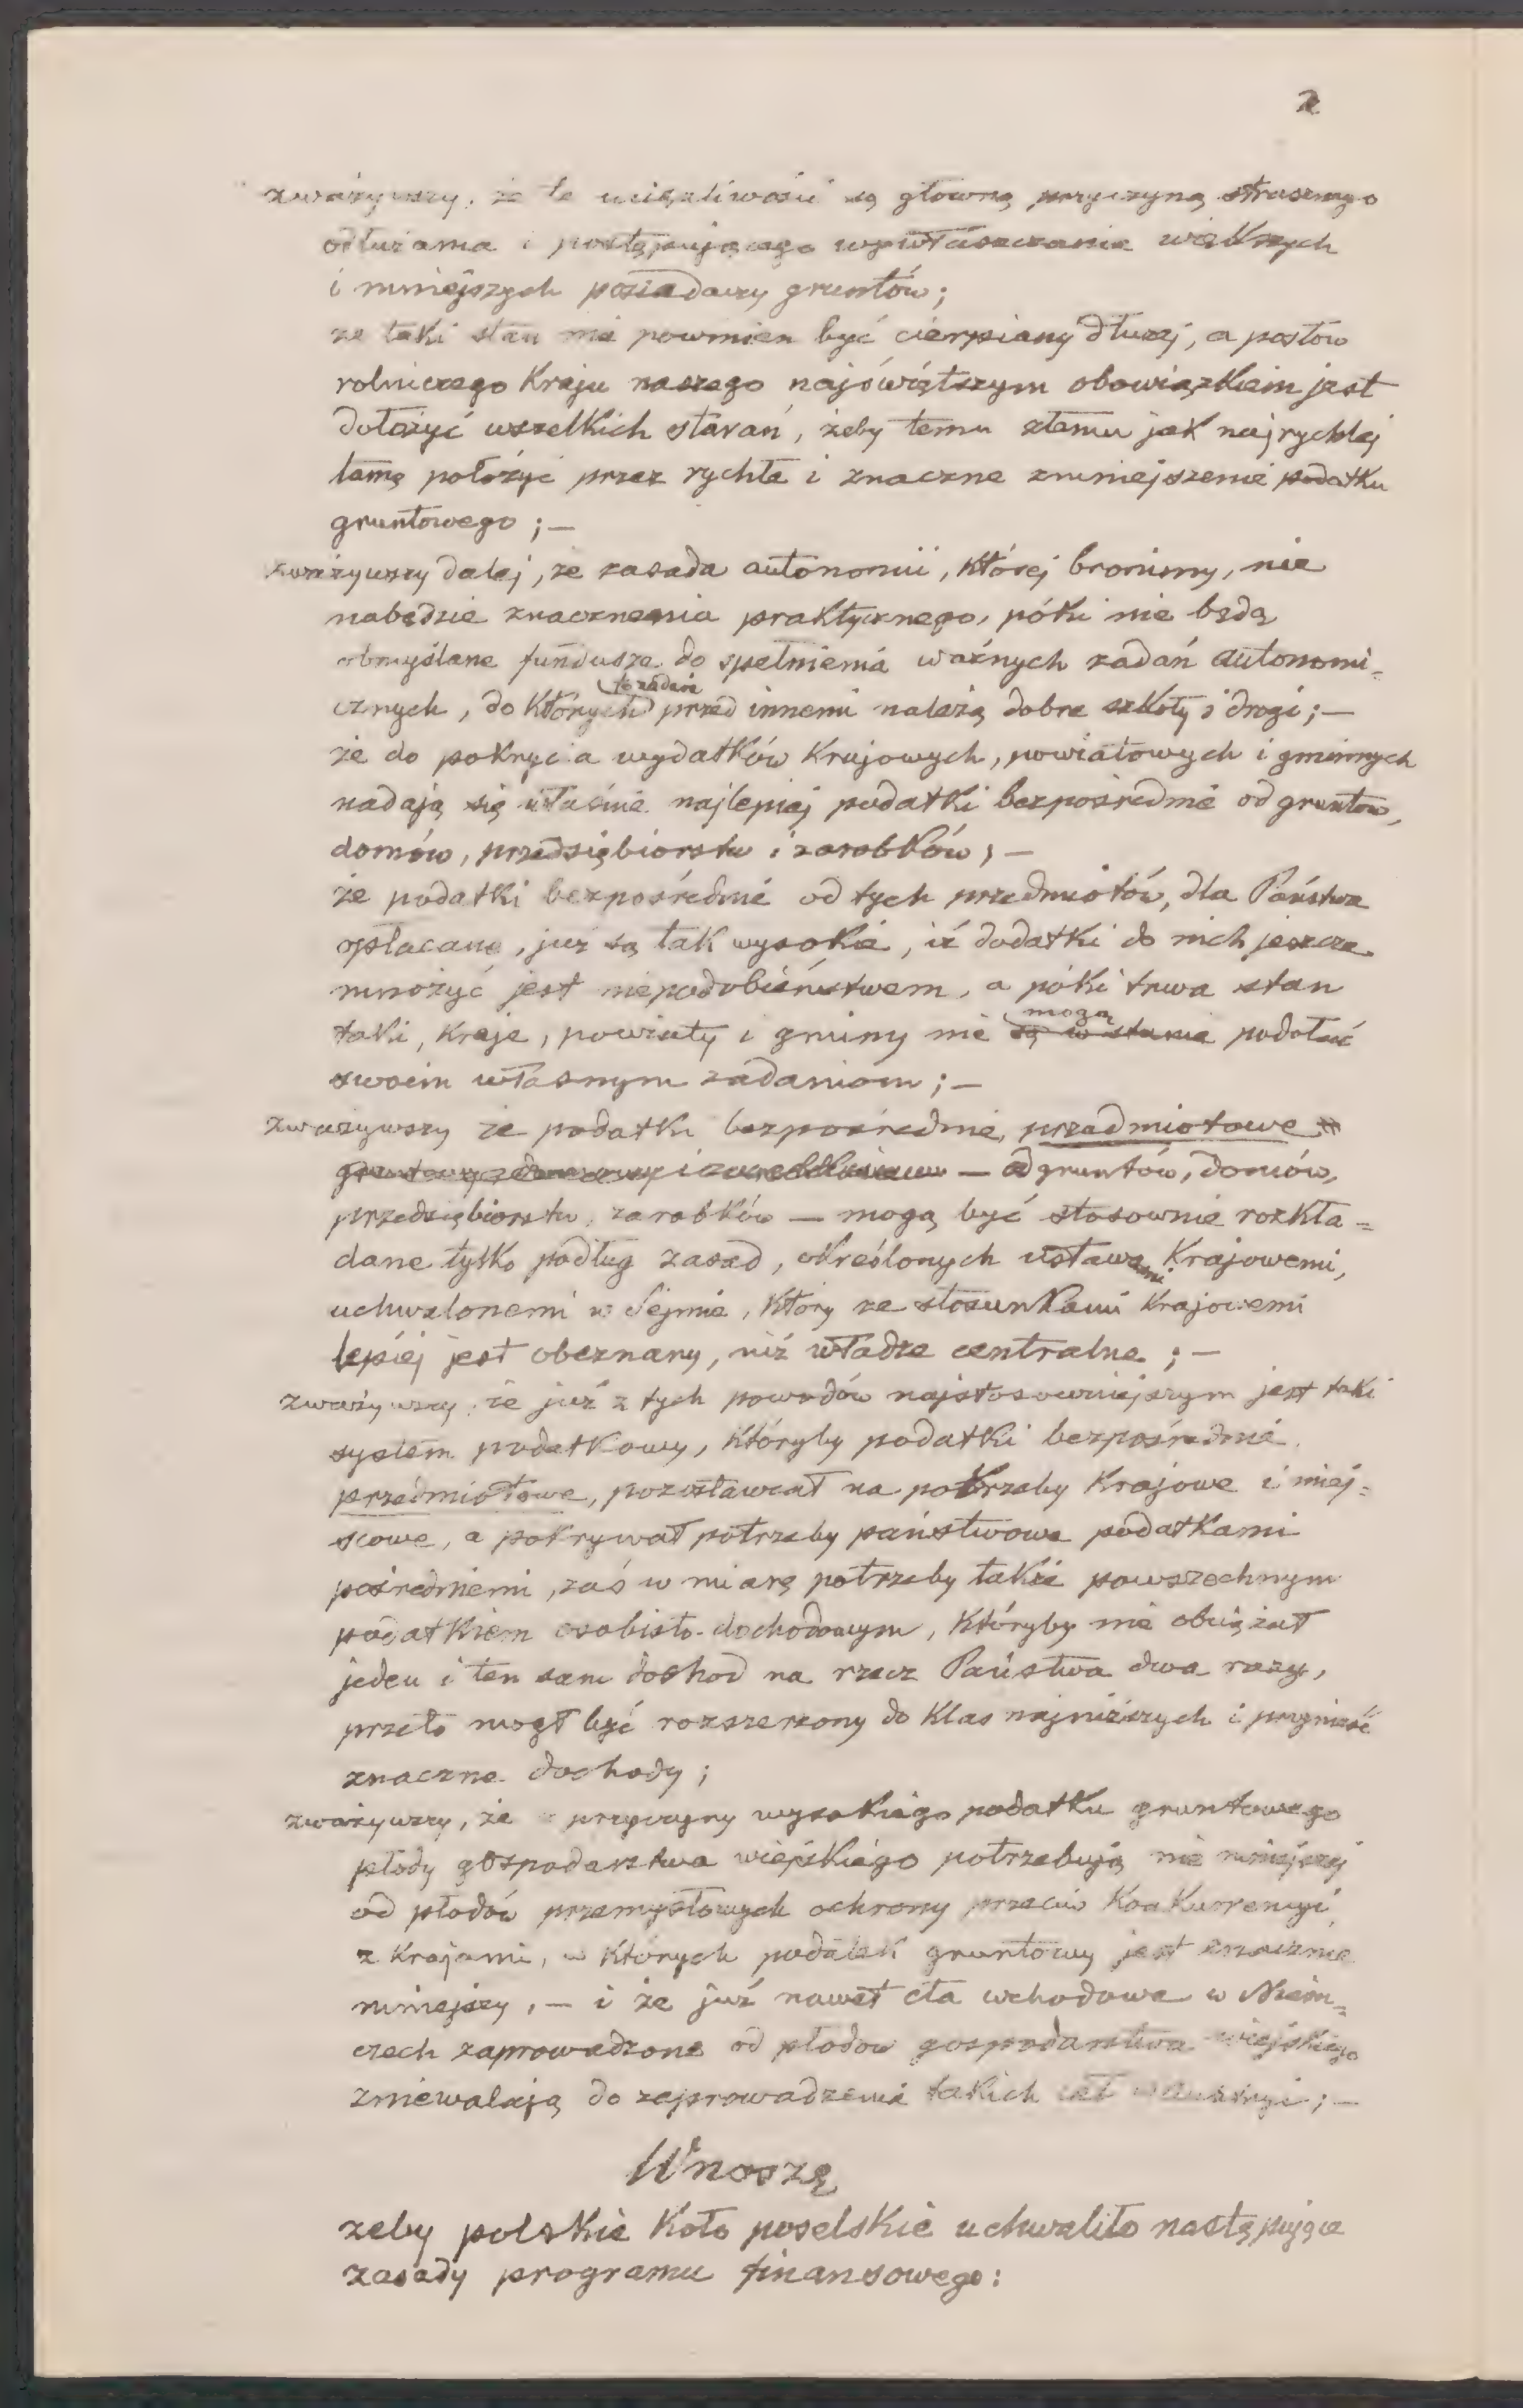 2
zważywszy, że te uciążliwości są główną przyczyną strasznego
odłużania i postępującego wywłaszczania większych
i mniejszych posiadaczy gruntów;
że taki stan nie powinien być cierpiany dłużej, a posłów
rolniczego Kraju naszego najświętszym obowiązkiem jest
dołożyć wszelkich starań, żeby temu złemu jak najrychlej
tamę położyć przez rychłe i znaczne zmniejszenie podatku
gruntowego; —
zważywszy dalej, że zasada autonomii, której bronimy, nie
nabędzie znaczenia praktycznego, póki nie będą
obmyślane fundusze do spełnienia ważnych zadań autonomi-
cznych, do których przed innemi należą dobre szkoły i drogi; —
że do pokrycia wydatków Krajowych, powiatowych i gminnych
nadają się właśnie najlepiej podatki bezpośrednie od gruntów,
domów, przedsiębiorstw i zarobków; —
że podatki bezpośrednie od tych przedmiotów, dla Państwa
opłacane, już są tak wysokie, iż dodatki do nich jeszcze
mnożyć jest niepodobieństwem, a póki trwa stan
taki, Kraje, powiaty i gminy nie są w stanie mogą podołać
swoim własnym zadaniom; —
zważywszy że podatki bezpośrednie, przedmiotowe
— od gruntów, domów,
przedsiębiorstw, zarobków — mogą być stosownie rozkła-
dane tylko podług zasad, określonych ustawami Krajowemi,
uchwalonemi w Sejmie, który ze stosunkami Krajowemi
lepiej jest obeznany, niż władze centralne; —
zważywszy, że już z tych powodów najstosowniejszym jest taki
system podatkowy, któryby podatki bezpośrednie
przedmiotowe, pozostawiał na potrzeby Krajowe i miej-
scowe, a pokrywał potrzeby państwowe podatkami
pośredniemi, zaś w miarę potrzeby także powszechnym
podatkiem osobisto-dochodowym, któryby nie obciążał
jeden i ten sam dochod na rzecz Państwa dwa razy,
przeto mogł być rozszerzony do Klas najniższych i przynieść
znaczne dochody;
zważywszy, że z przyczyny wysokiego podatku gruntowego
płody gospodarstwa wiejskiego potrzebują nie mniejszej
od płodów przemysłowych ochrony przeciw Konkurrencyi
z Krajami, w których podatek gruntowy jest znacznie
mniejszy, — i że już nawet cła wchodowe w Niem-
czech zaprowadzone od płodow gospodarstwa wiejskiego
zniewalają do zaprowadzenia takich ceł w Austryi; —
Wnoszę
żeby polskie Koło poselskie uchwaliło następujące
zasady programu finansowego: